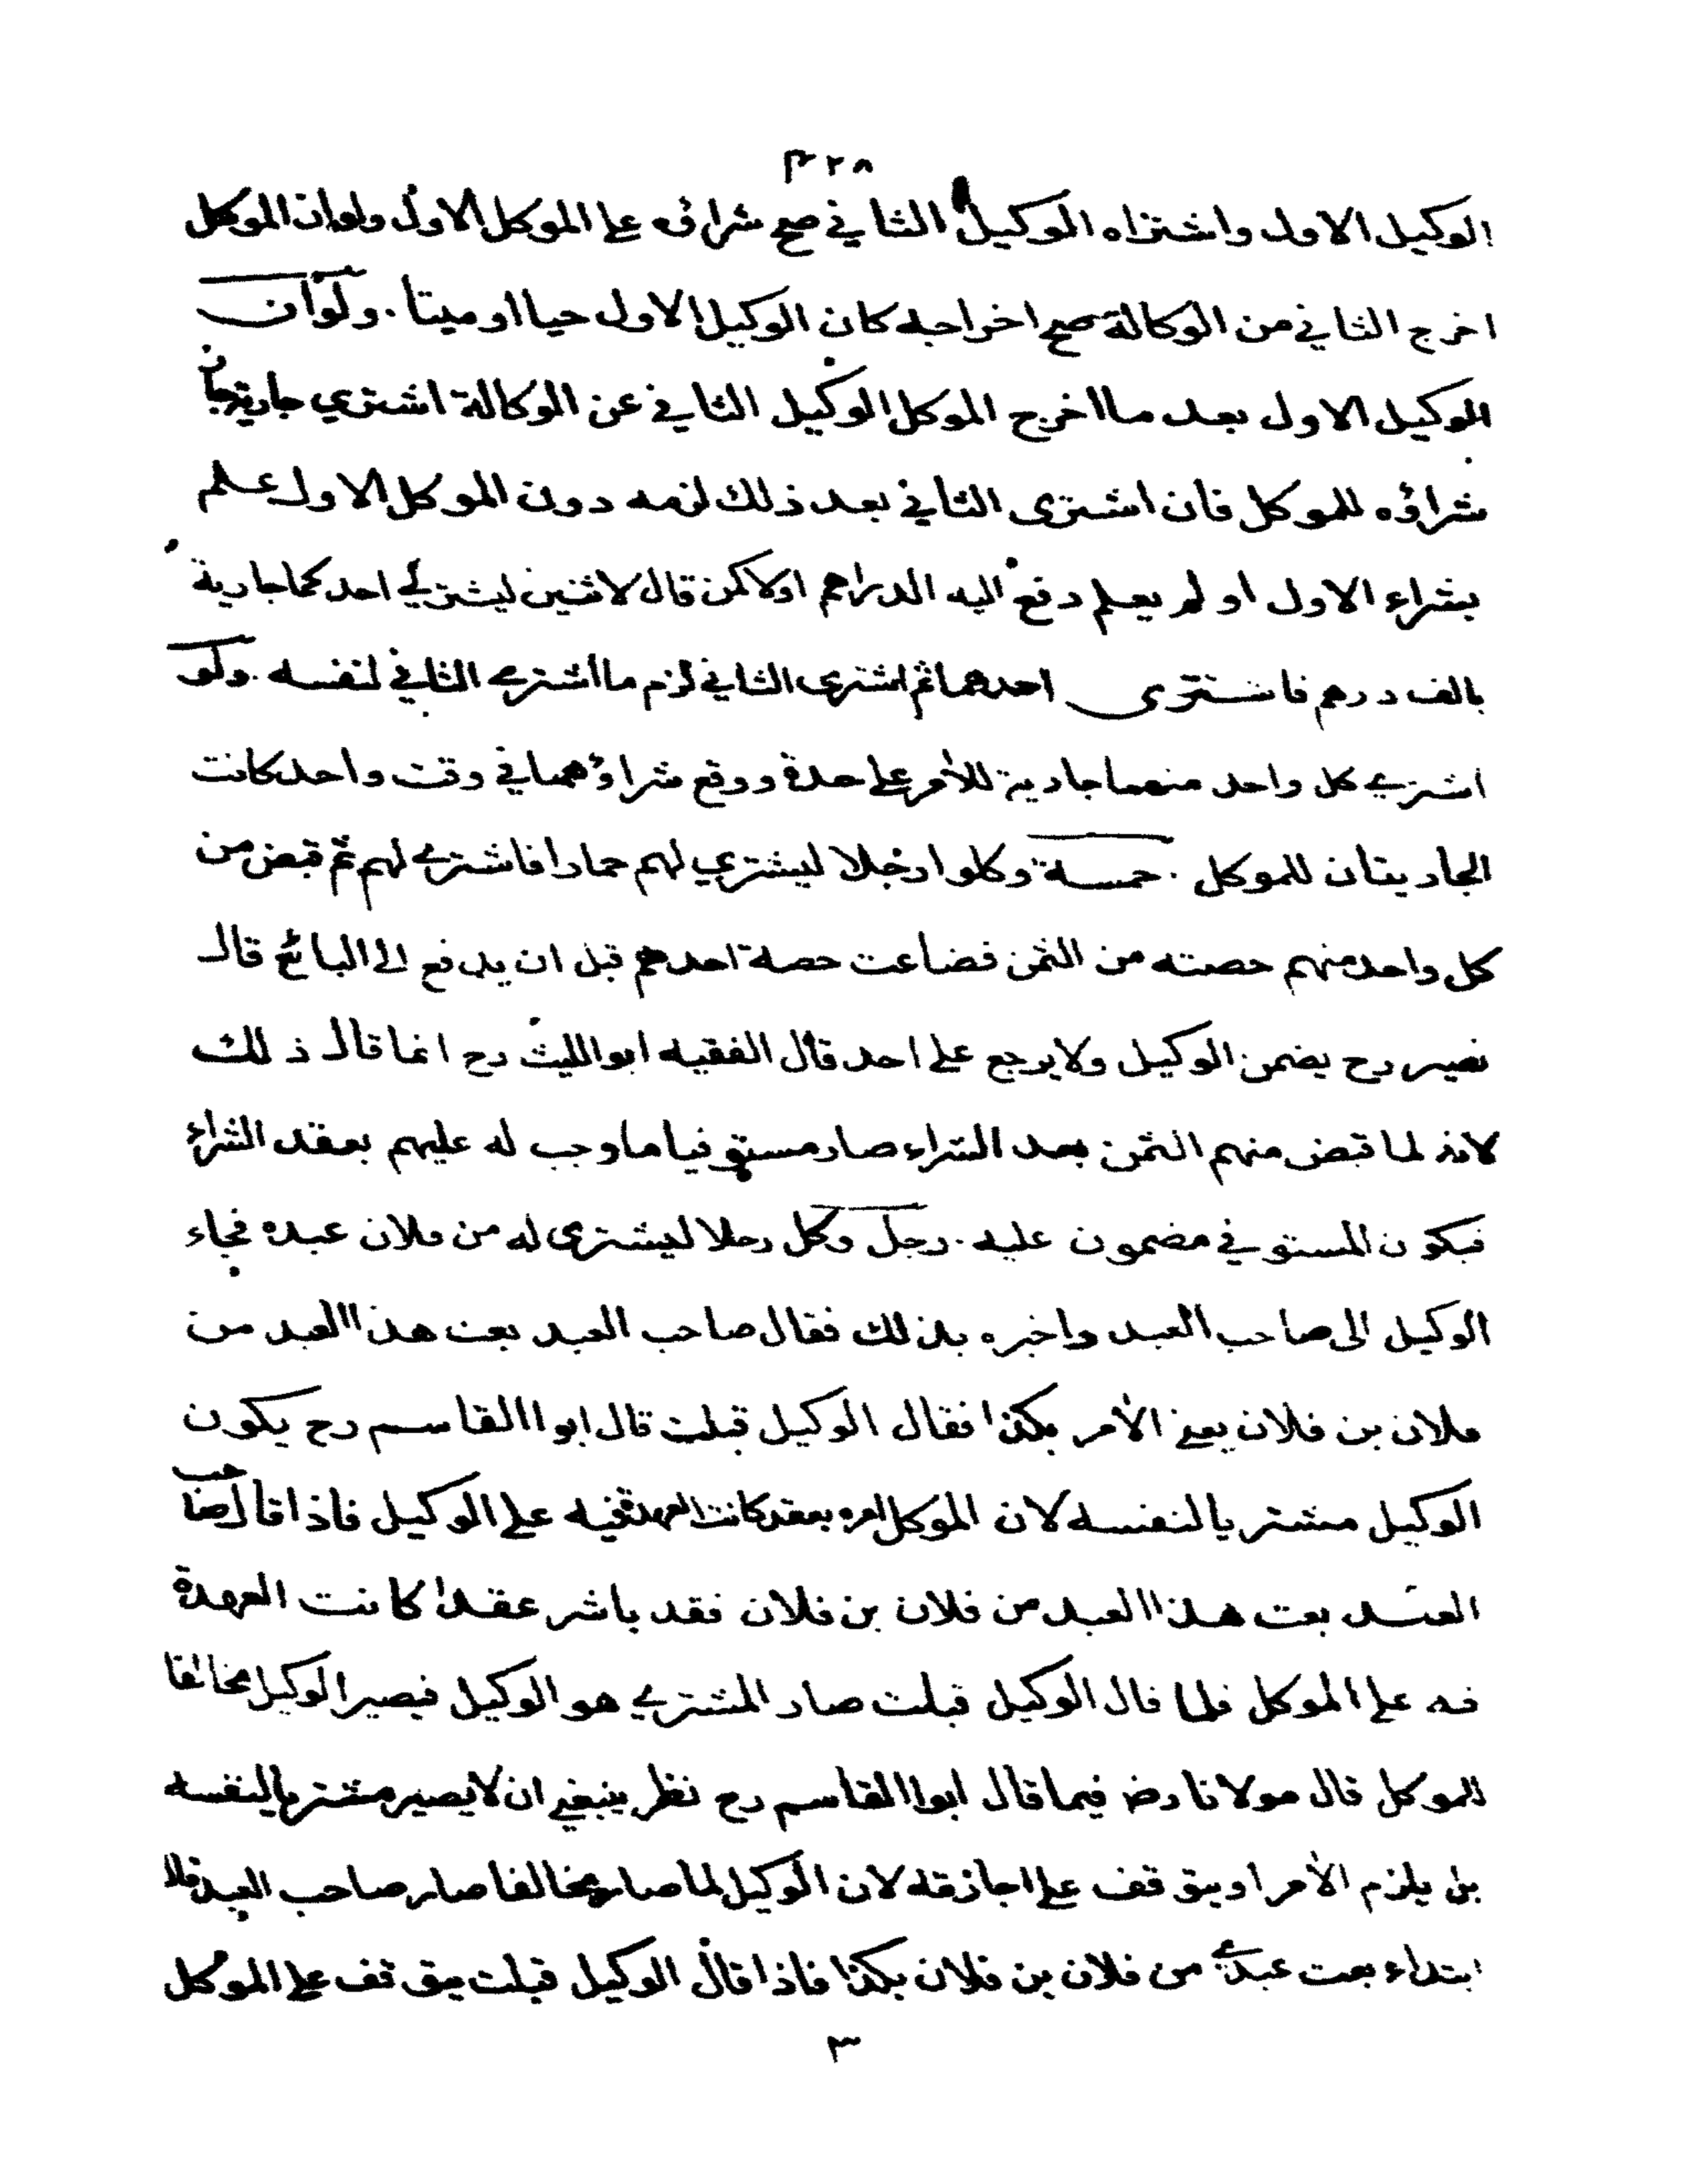 ٣٢٨
الوكيل الاول واشتراه الوكيل الثاني صح شراؤه على الموكل الاول ولو ان الموكل
اخرج الثاني من الوكالة صح اخراجه كان الوكيل الاول حيا او ميتا . ولو ان
الوكيل الاول بعد ما اخرج الموكل الوكيل الثاني عن الوكالة اشترى جارية جاز
شراؤه للموكل فان اشترى الثاني بعد ذلك لزمه دون الموكل الاول علم
بشراء الاول او لم يعلم دفع اليه الدراهم اولا كمن قال لاثنين ليشتري لي احدكما جارية
بالف درهم فاشترى احدهما ثم اشترى الثاني لزم ما اشترى الثاني لنفسه . ولو
اشترى كل واحد منهما جارية للأمر على حدة ووقع شراؤهما في وقت واحد كانت
الجاريتان للموكل . خمسة وكلوا رجلا ليشتري لهم حمارا فاشترى لهم ثم قبض من
كل واحد منهم حصته من الثمن فضاعت حصة احدهم قبل ان يدفع الى البائع قال
نصير رح يضمن الوكيل ولا يرجع على احد قال الفقيه ابو الليث رح انما قال ذلك
لانه لما قبض منهم الثمن بعد الشراء صار مستوفيا ما وجب له عليهم بعقد الشراء
فيكون المستوفي مضمون عليه . رجل وكل رجلا ليشترى له من فلان عبده فجاء
الوكيل الى صاحب العبد واخبره بذلك فقال صاحب العبد بعت هذا العبد من
فلان بن فلان يعني الأمر بكذا فقال الوكيل قبلت قال ابو القاسم رح يكون
الوكيل مشتريا لنفسه لان الموكل امره بعقد كانت العهدة فيه على الوكيل فاذا قال صاحب
العبد بعت هذا العبد من فلان بن فلان فقد باشر عقدا كانت العهدة
فيه على الموكل فلما قال الوكيل قبلت صار المشتري هو الوكيل فيصير الوكيل مخالفا
للموكل قال مولانا رض فيما قال ابو القاسم رح نظر ينبغي ان لا يصير مشتريا لنفسه
بل يلزم الأمر او يتوقف على اجازته لان الوكيل لما صار مخالفا صار صاحب العبد قال
ابتداء بعت عبدي من فلان بن فلان بكذا فاذا قال الوكيل قبلت يتوقف على الموكل
٣